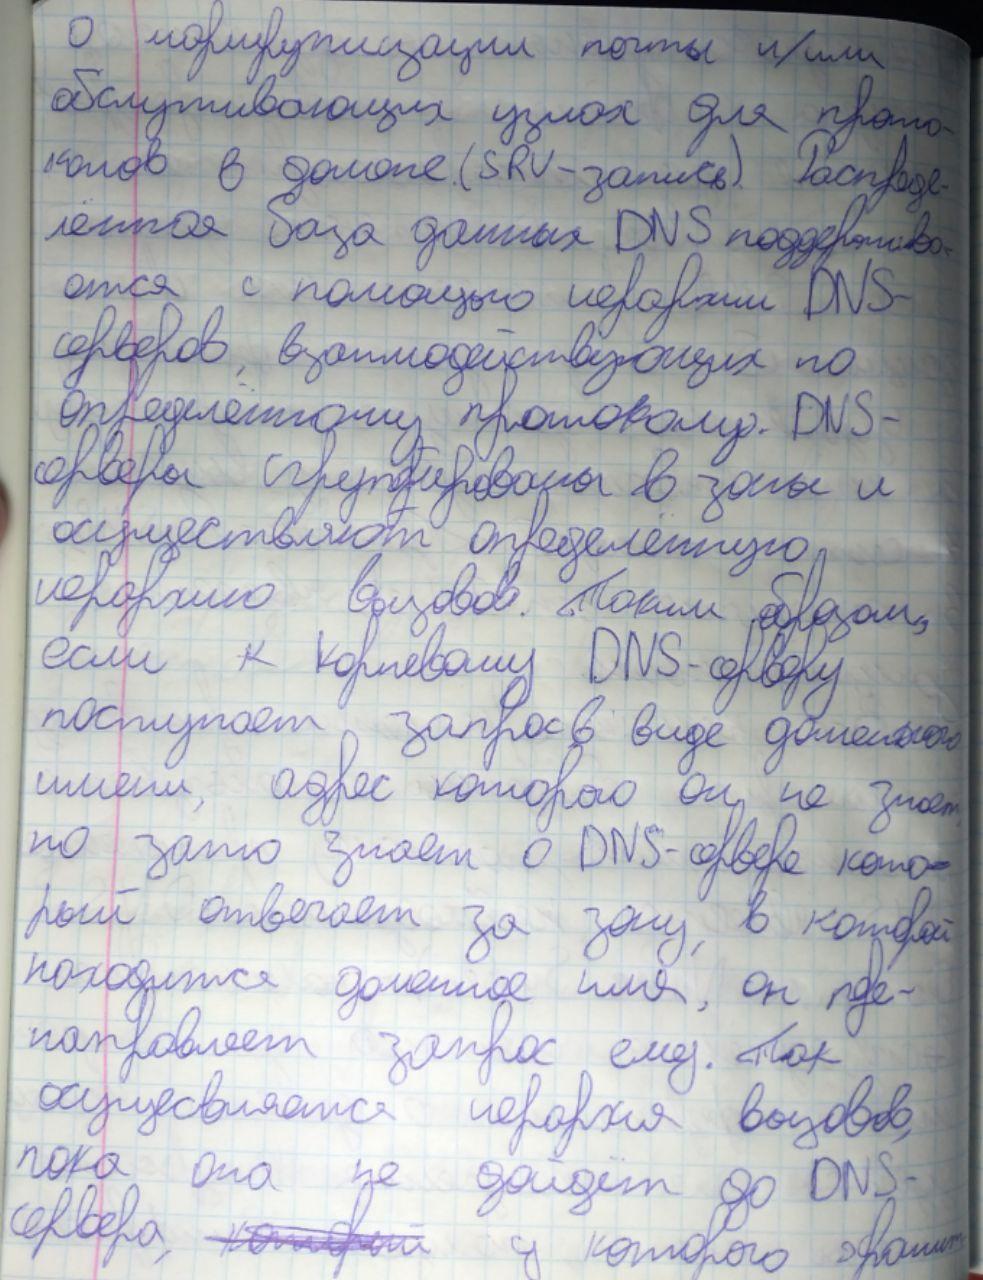 о маршрутизации почты и/или
обслуживающих узлах для прото-
колов в домене (SRV-запись). Распреде-
лённая база данных DNS поддержива-
ется с помощью иерархии DNS-
серверов, взаимодействующих по
определённому протоколу. DNS-
серверы сгруппированы в зоны и
осуществляют определённую
иерархию вызовов. Таким образом,
если к корневому DNS-серверу
поступает запрос в виде доменного
имени, адрес которого он не знает,
но зато знает о DNS-сервере кото-
рый отвечает за зону, в которой
находится доменное имя, он пере-
направляет запрос ему. Так
осуществляется иерархия вызовов,
пока она не дойдёт до DNS-
сервера, который у которого хранит